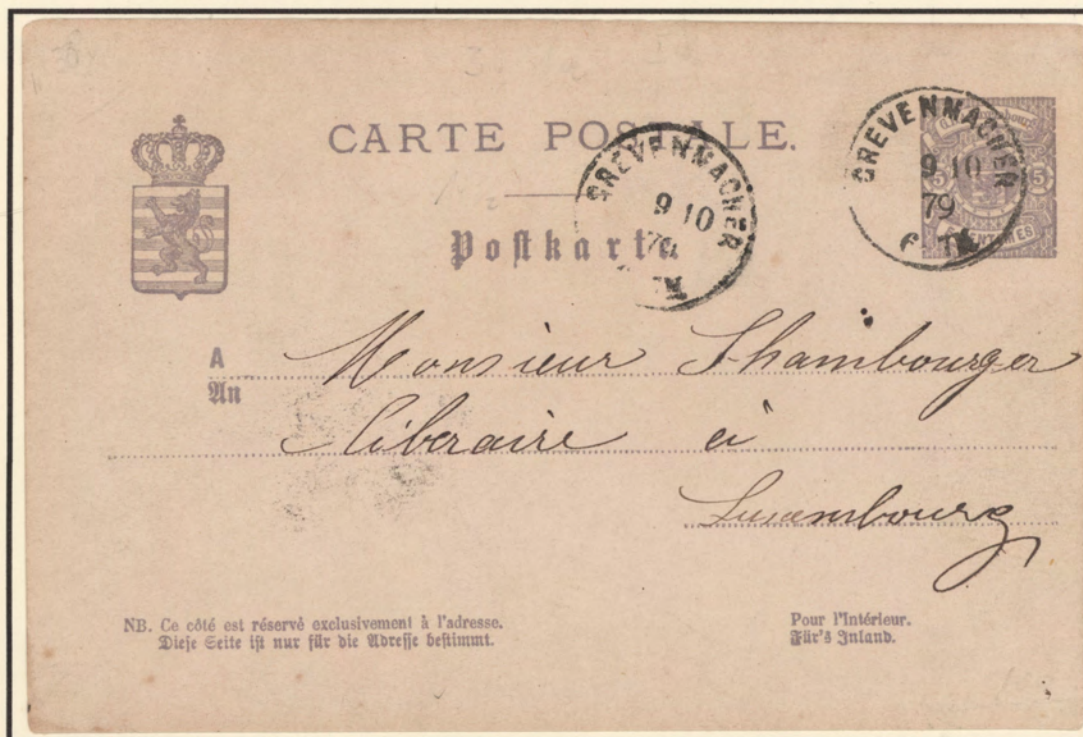 CARTE POSTALE.
Postkarte
GREVENMACHER
9 10
79
GREVENMACHER
9 10
79
5 5
CENTIMES
A Monsieur Shambourger
An
Liberaire à
Luxembourg
NB. Ce côté est réservé exclusivement à l'adresse.
Diese Seite ist nur für die Adresse bestimmt.
Pour l'Intérieur.
Für's Inland.